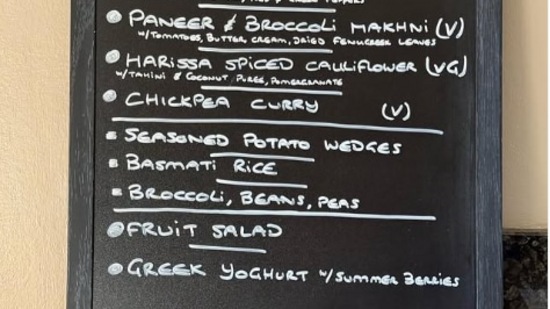 & GREEN PEPPERS
PANEER & BROCCOLI MAKHNI (V)
W/TOMATOES, BUTTER, CREAM, DRIED FENUGREEK LEAVES
HARISSA SPICED CAULIFLOWER (VG)
W/TAHINI & COCONUT PUREE, POMEGRANATE
CHICKPEA CURRY (V)
SEASONED POTATO WEDGES
BASMATI RICE
BROCCOLI, BEANS, PEAS
FRUIT SALAD
GREEK YOGHURT W/SUMMER BERRIES